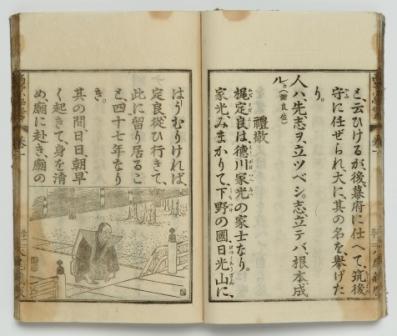 と云ひけるが、後、幕府に仕へて、筑後
守に任ぜられ、大に、其の名を擧げた
り。
人ハ先志ヲ立ツベシ。志立テバ、根本成
ル。
禮敬
梶定良は、德川家光の家士なり。
家光、みまかりて、下野の國日光山に、
はうむりければ、
定良從ひ行きて、
此に留り居るこ
と四十七年なり
き。
其の間、日日、朝早
く起きて、身を淸
め、廟に赴き、廟の